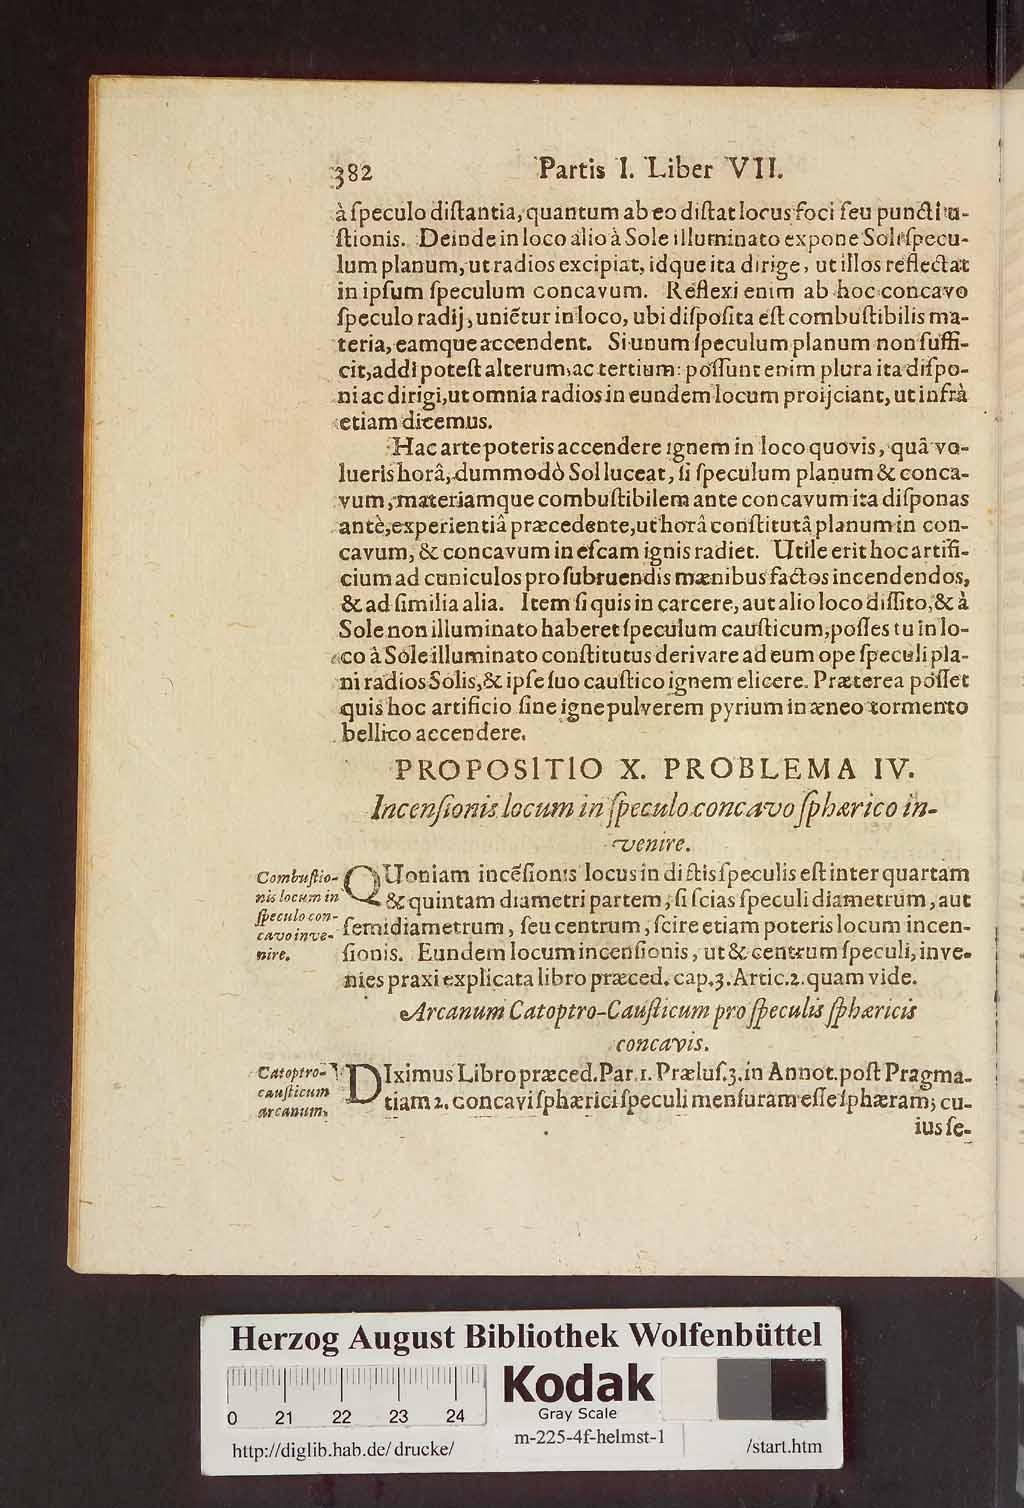 382 Partis I. Liber VII.
à ſpeculo diſtantia, quantum ab eo diſtat locus foci ſeu puncti u-
ſtionis. Deinde in loco alio à Sole illuminato expone Soli ſpecu-
lum planum, ut radios excipiat, idque ita dirige, ut illos reflectat
in ipſum ſpeculum concavum. Reflexi enim ab hoc concavo
ſpeculo radij, uniẽtur in loco, ubi diſpoſita eſt combuſtibilis ma-
teria, eamque accendent. Si unum ſpeculum planum non ſuffi-
cit, addi poteſt alterum, ac tertium: poſſunt enim plura ita diſpo-
ni ac dirigi, ut omnia radios in eundem locum proijciant, ut infrà
etiam dicemus.
Hac arte poteris accendere ignem in loco quovis, quâ vo-
lueris horâ, dummodò Sol luceat, ſi ſpeculum planum & conca-
vum, materiamque combuſtibilem ante concavum ita diſponas
antè, experientiâ præcedente, ut horâ conſtitutâ planum in con-
cavum, & concavum in eſcam ignis radiet. Utile erit hoc artifi-
cium ad cuniculos pro ſubruendis mænibus factos incendendos,
& ad ſimilia alia. Item ſi quis in carcere, aut alio loco diſſito, & à
Sole non illuminato haberet ſpeculum cauſticum, poſſes tu in lo-
co à Sole illuminato conſtitutus derivare ad eum ope ſpeculi pla-
ni radios Solis, & ipſe ſuo cauſtico ignem elicere. Præterea poſſet
quis hoc artificio ſine igne pulverem pyrium in æneo tormento
bellico accendere.
PROPOSITIO X. PROBLEMA IV.
Incenſionis locum in ſpeculo concavo ſphærico in-
venire.
Combuſtio-
nis locum in
ſpeculo con-
cavo inve-
nire.
QUoniam incẽſionis locus in dictis ſpeculis eſt inter quartam
& quintam diametri partem, ſi ſcias ſpeculi diametrum, aut
ſemidiametrum, ſeu centrum, ſcire etiam poteris locum incen-
ſionis. Eundem locum incenſionis, ut & centrum ſpeculi, inve-
nies praxi explicata libro præced. cap. 3. Artic. 2. quam vide.
Arcanum Catoptro-Cauſticum pro ſpeculis ſphæricis
concavis.
Catoptro-
cauſticum
arcanum.
DIximus Libro præced. Par. 1. Præluſ. 3. in Annot. poſt Pragma-
tiam 2. concavi ſphærici ſpeculi menſuram eſſe ſphæram; cu-
ius ſe-
Herzog August Bibliothek Wolfenbüttel
0 21 22 23 24
Kodak
Gray Scale
http://diglib.hab.de/drucke/ m-225-4f-helmst-1 /start.htm